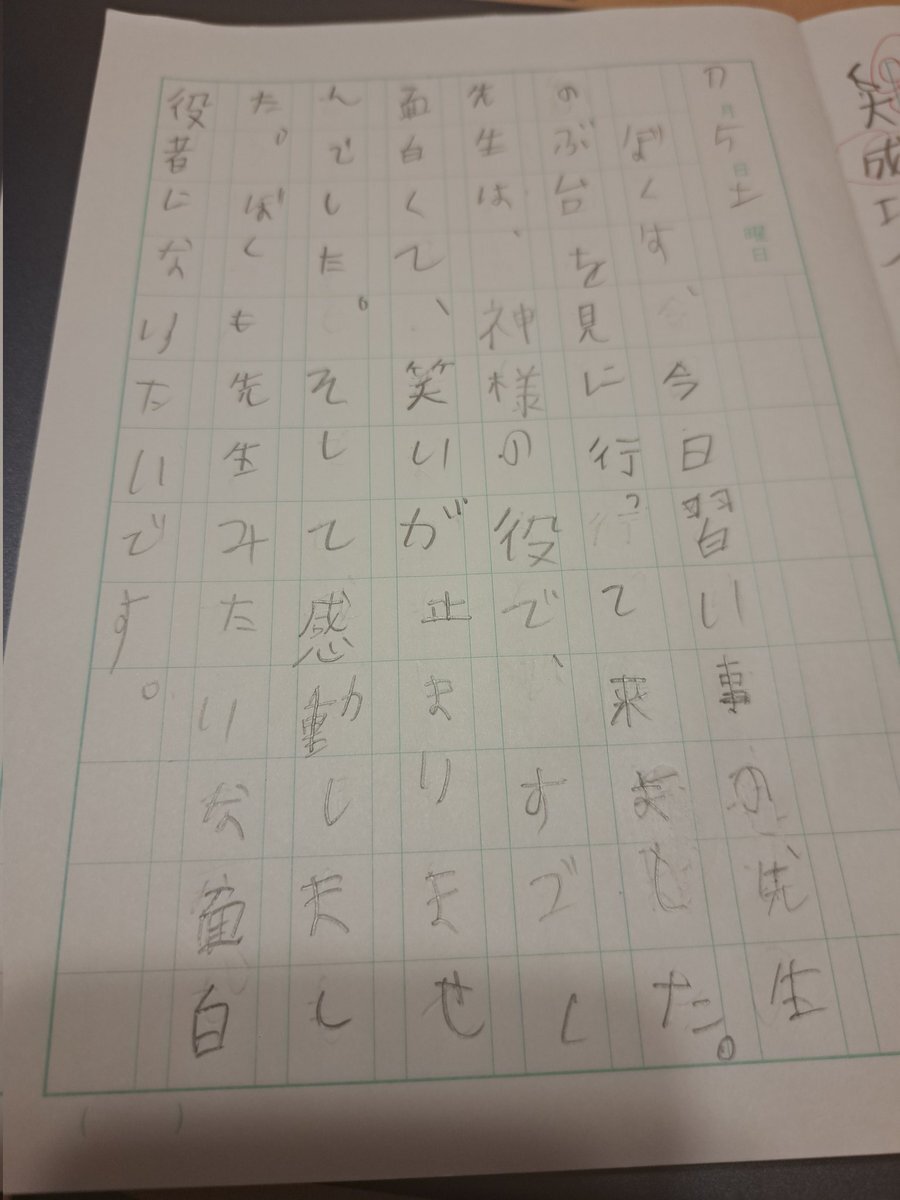 7月5日土曜日
ぼくは、今日習い事の先生
のぶ台を見に行って来ました。
先生は、神様の役で、すごく
面白くて、笑いが止まりませ
んでした。そして感動しまし
た。ぼくも先生みたいな面白
役者になりたいです。